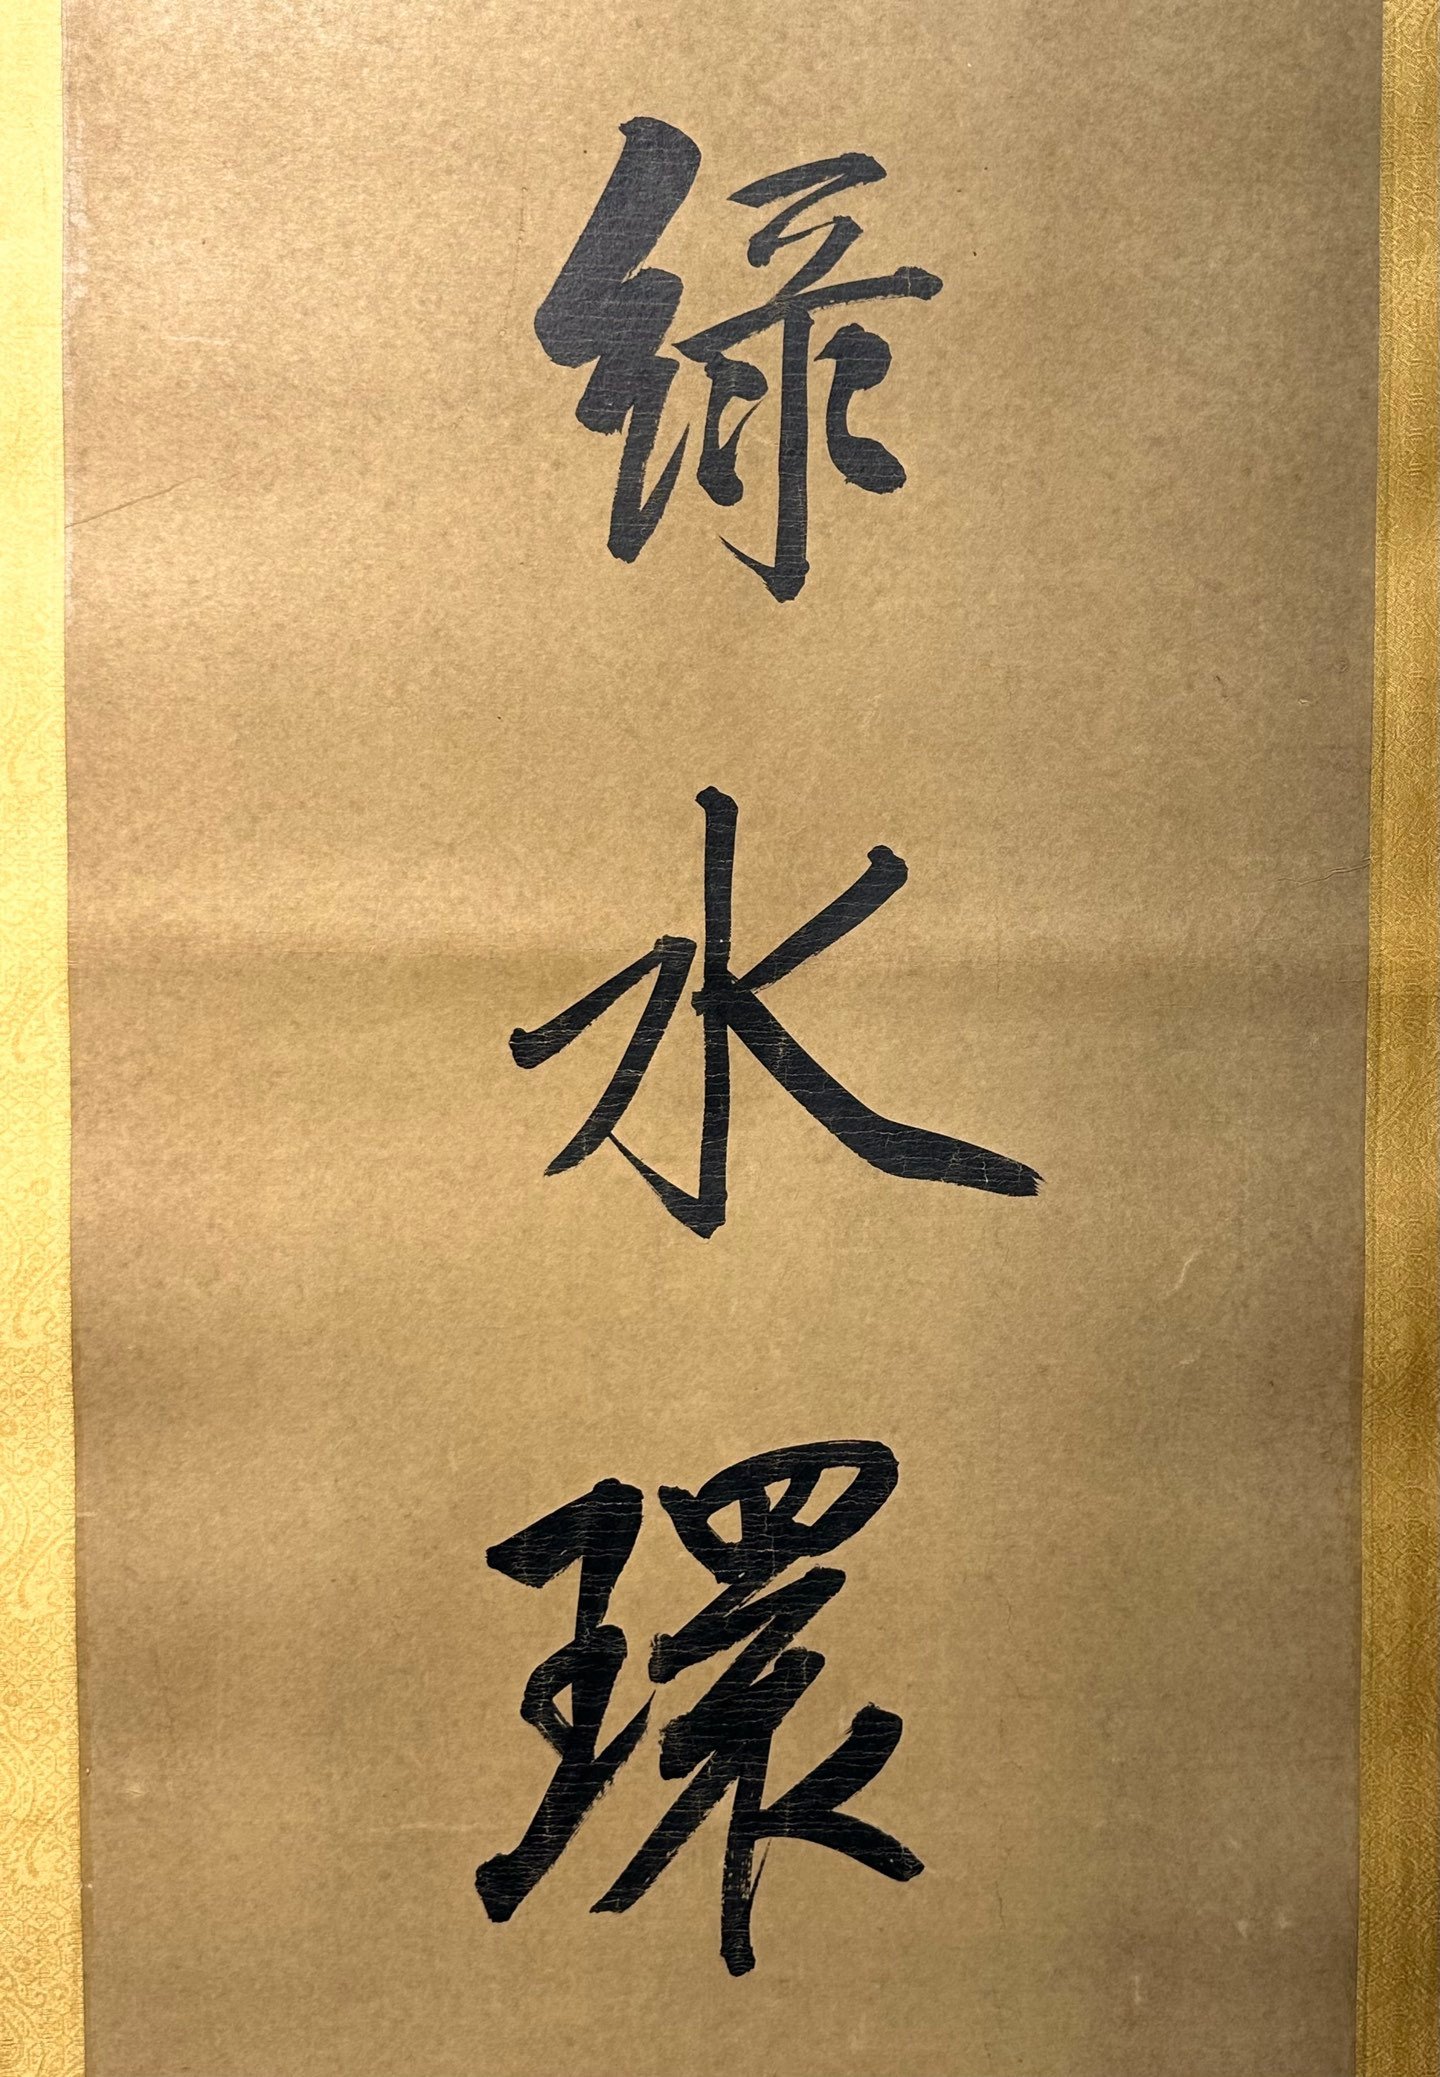 綠水環